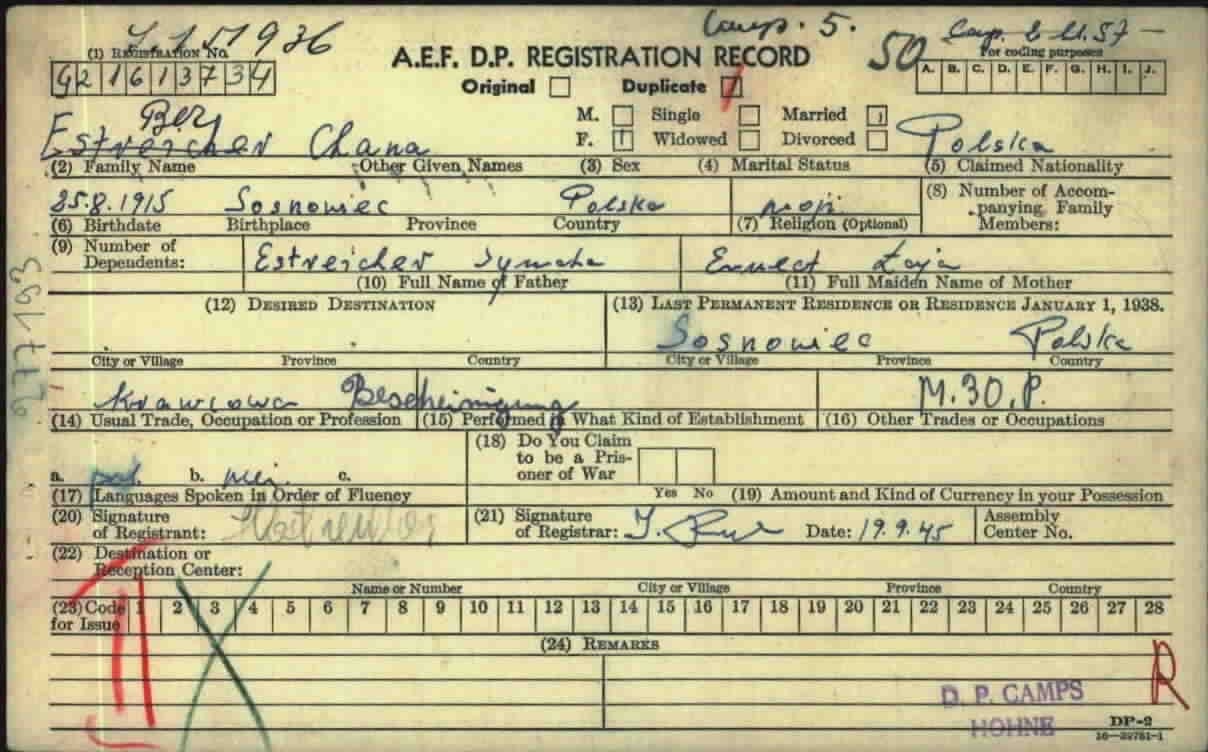 Camp. 5.
936
50
(1) REGISTRATION No.
G21613734
A.E.F. D.P. REGISTRATION RECORD
For coding purposes
A. B. C. D. E. F. G. H. I. J.
Original Duplicate
M. Single Married
F. Widowed Divorced
Ber
Estreicher Chana Polska
(2) Family Name Other Given Names (3) Sex (4) Marital Status (5) Claimed Nationality
25.8.1915 Sosnowiec Polska moj
(8) Number of Accompanying Family Members:
(6) Birthdate Birthplace Province Country (7) Religion (Optional)
(9) Number of Dependents:
Estreicher Symcha
(10) Full Name of Father (11) Full Maiden Name of Mother
(12) DESIRED DESTINATION (13) LAST PERMANENT RESIDENCE OR RESIDENCE JANUARY 1, 1938.
Sosnowiec Polska
City or Village Province Country City or Village Province Country
Krawcowa Bescheinigung M.30.P.
(14) Usual Trade, Occupation or Profession (15) Performed in What Kind of Establishment (16) Other Trades or Occupations
(18) Do You Claim to be a Prisoner of War
a. pol. b. c.
Yes No
(17) Languages Spoken in Order of Fluency (19) Amount and Kind of Currency in your Possession
(20) Signature of Registrant:
(21) Signature of Registrar: Date: 19.9.45
Assembly Center No.
(22) Destination or Reception Center:
Name or Number City or Village Province Country
(23) Code for Issue 1 2 3 4 5 6 7 8 9 10 11 12 13 14 15 16 17 18 19 20 21 22 23 24 25 26 27 28
(24) REMARKS
R
D. P. CAMPS
HOHNE
DP-2
16—39751-1